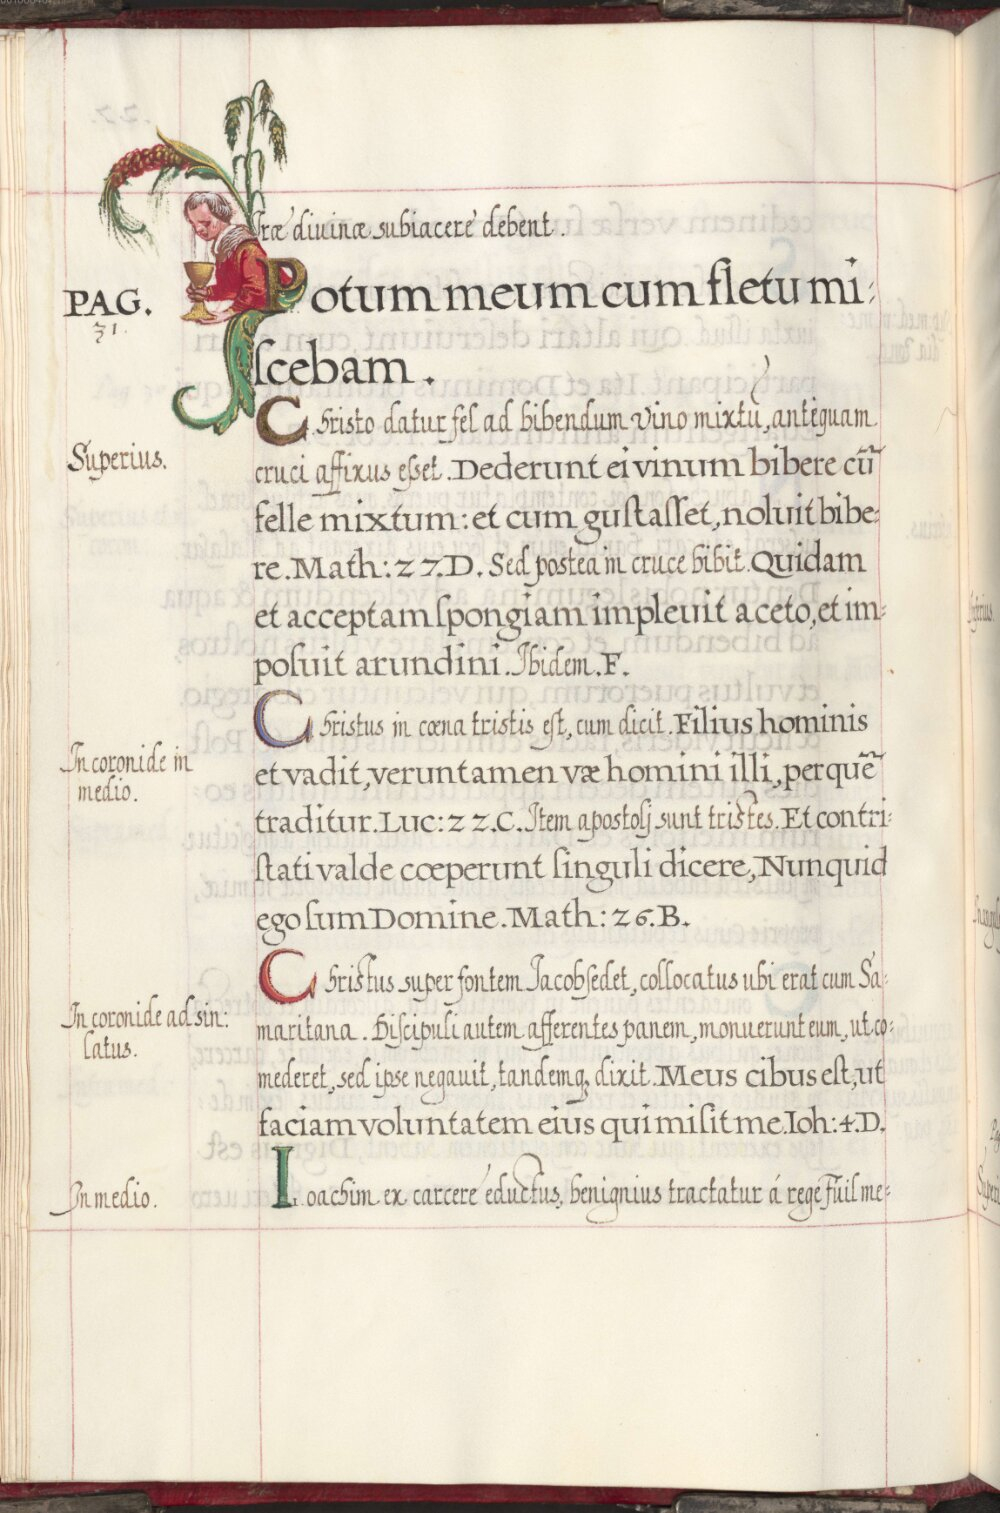 stræ divinæ subiacere debent.
PAG.
31.
Potum meum cum fletu mi:
scebam.
Superius.
Christo datur fel ad bibendum vino mixtū, antequam
cruci affixus esset. Dederunt ei vinum bibere cū
felle mixtum: et cum gustasset, noluit bibe:
re. Math: 27. D. Sed postea in cruce bibit. Quidam
et acceptam spongiam impleuit aceto, et im:
posuit arundini. Ibidem. F.
In coronide in
medio.
Christus in cœna tristis est, cum dicit. Filius hominis
et vadit, veruntamen væ homini illi, per quē
traditur. Luc: 22. C. Item apostolj sunt tristes. Et contri:
stati valde cœperunt singuli dicere, Nunquid
ego sum Domine. Math: 26. B.
In coronide ad sin:
latus.
Christus super fontem Jacob sedet, collocatus ubi erat cum Sa:
maritana. Discipuli autem afferentes panem, monuerunt eum, ut co:
mederet, sed ipse negauit, tandemq; dixit. Meus cibus est, ut
faciam voluntatem eius qui misit me. Ioh: 4. D.
In medio.
Ioachim ex carcere eductus, benignius tractatur á rege Euil me: